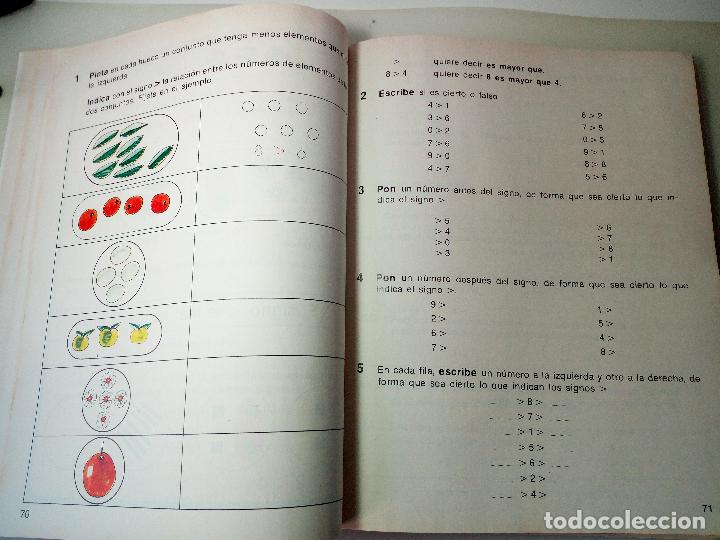 1 Pinta en cada hueco un conjunto que tenga menos elementos que
la izquierda.
Indica con el signo > la relación entre los números de elementos
dos conjuntos. Fíjate en el ejemplo.
70
> quiere decir es mayor que.
8 > 4 quiere decir 8 es mayor que 4.
2 Escribe si es cierto o falso
4 > 1
3 > 6
0 > 2
7 > 6
9 > 0
4 > 7
6 > 2
7 > 5
0 > 3
9 > 1
8 > 8
5 > 6
3 Pon un número antes del signo, de forma que sea cierto lo que in-
dica el signo >
> 5
> 4
> 0
> 3
> 6
> 7
> 8
> 1
4 Pon un número después del signo, de forma que sea cierto lo que
indica el signo >.
9 >
2 >
6 >
7 >
1 >
5 >
4 >
8 >
5 En cada fila, escribe un número a la izquierda y otro a la derecha, de
forma que sea cierto lo que indican los signos >
> 8 >
> 7 >
> 1 >
> 5 >
> 6 >
> 2 >
> 4 >
71
todocoleccion.net